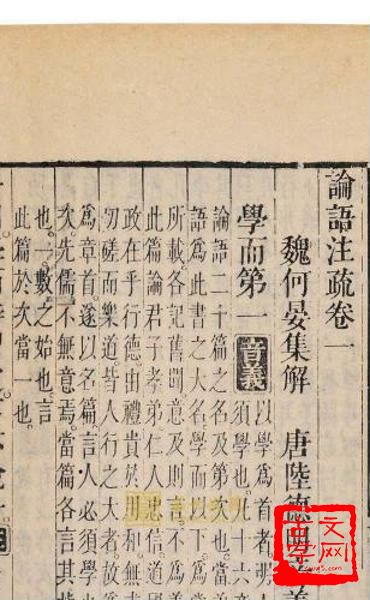 論語注疏卷一
魏何晏集解 唐陸德
學而第一 音義 以學爲首者明人
須學也。凡十六
論語二十篇之名及第次也。當
語爲此書之大名。學而以下爲當
所載各記舊聞。意及則言。不爲義
此篇論君子孝弟仁人忠信道國
政在乎行德由禮貴於用和無求
切磋而樂道皆人行之大者。故爲
爲章首。遂以名篇。言人必須學也
次先儒不無意焉。當篇各言其指
也。一數之始也。言
此篇於次當一也。
古文字网